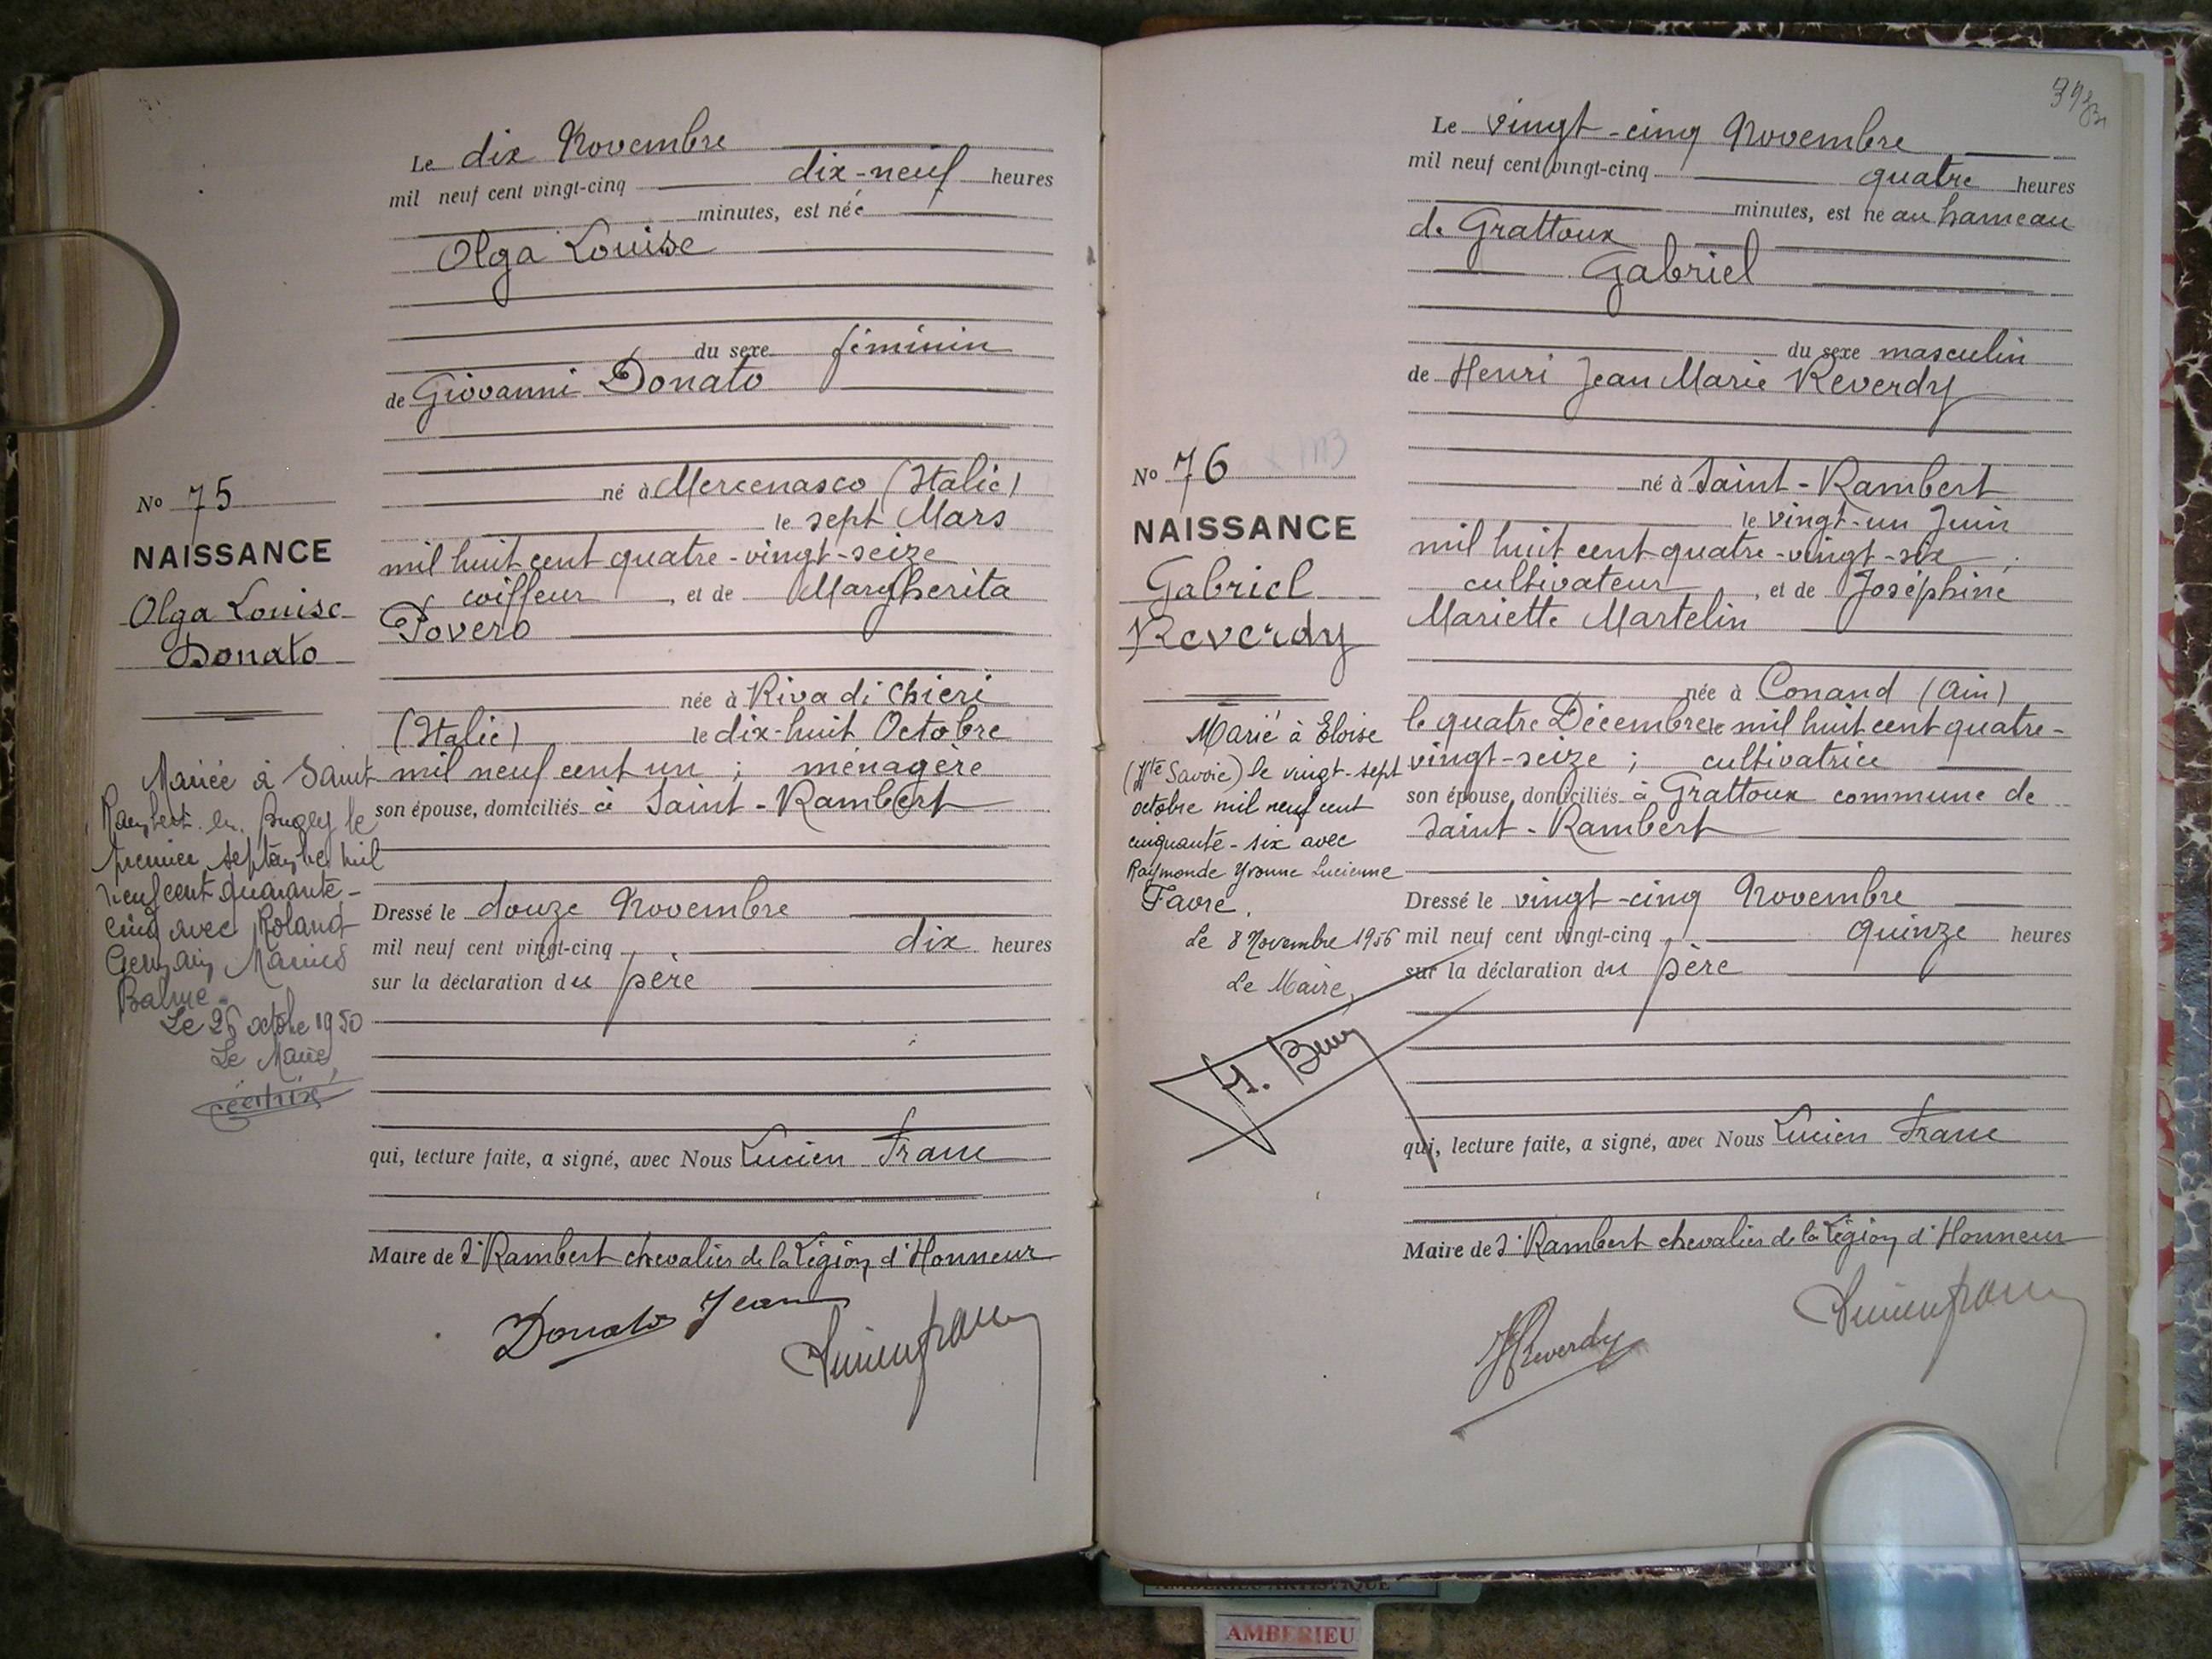 Le dix Novembre
mil neuf cent vingt-cinq dix-neuf heures
minutes, est née
Olga Louise
du sexe féminin
de Giovanni Donato
né à Mercenasco (Italie)
le sept Mars
mil huit cent quatre-vingt-seize
coiffeur, et de Margherita
Povero
née à Riva di Chieri
(Italie) le dix-huit Octobre
mil neuf cent un ; ménagère
son épouse, domiciliés à Saint-Rambert
Dressé le douze Novembre
mil neuf cent vingt-cinq dix heures
sur la déclaration du père
qui, lecture faite, a signé, avec Nous Lucien Franc
Maire de St Rambert chevalier de la Légion d'Honneur
Donato Jean
Lucien Franc
No 75
NAISSANCE
Olga Louise
Donato
Mariée à Saint
Rambert en Bugey le
premier septembre mil
neuf cent quarante-
cinq avec Roland
Germain Marius
Balme.
Le 26 octobre 1950
Le Maire,
Le vingt-cinq Novembre
mil neuf cent vingt-cinq quatre heures
minutes, est né au hameau
de Grattoux
Gabriel
du sexe masculin
de Henri Jean Marie Reverdy
né à Saint-Rambert
le vingt-un Juin
mil huit cent quatre-vingt-six ;
cultivateur, et de Joséphine
Mariette Martelin
née à Conand (Ain)
le quatre Décembre le mil huit cent quatre-
vingt-seize ; cultivatrice
son épouse, domiciliés à Grattoux commune de
Saint-Rambert
Dressé le vingt-cinq Novembre
mil neuf cent vingt-cinq quinze heures
sur la déclaration du père
qui, lecture faite, a signé, avec Nous Lucien Franc
Maire de St Rambert chevalier de la Légion d'Honneur
HReverdy
Lucien Franc
No 76
NAISSANCE
Gabriel
Reverdy
Marié à Eloise
(Hte Savoie) le vingt-sept
octobre mil neuf cent
cinquante-six avec
Raymonde Yvonne Lucienne
Favre.
Le 8 Novembre 1956
Le Maire,
AMBERIEU ARTISTIQUE
AMBERIEU